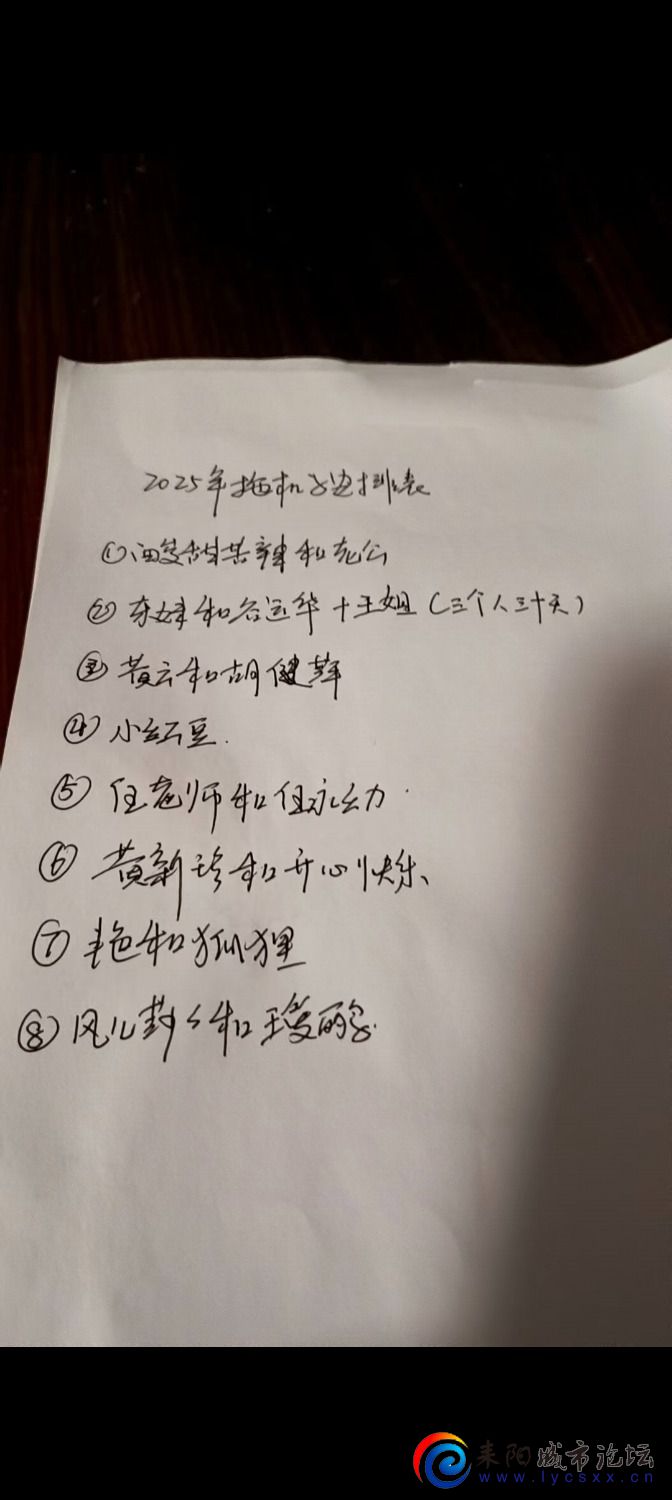 2025年拖机子安排表
①酒 甜苦辣和老公
②东妹和谷运华+王姐（三个人三十天）
③黄云和胡健群
④小红豆.
⑤伍老师和伍永幼.
⑥黄新珍和开心快乐、
⑦艳和狐狸
⑧风儿 和 丽
耒阳城市论坛
www.lycsxx.cn